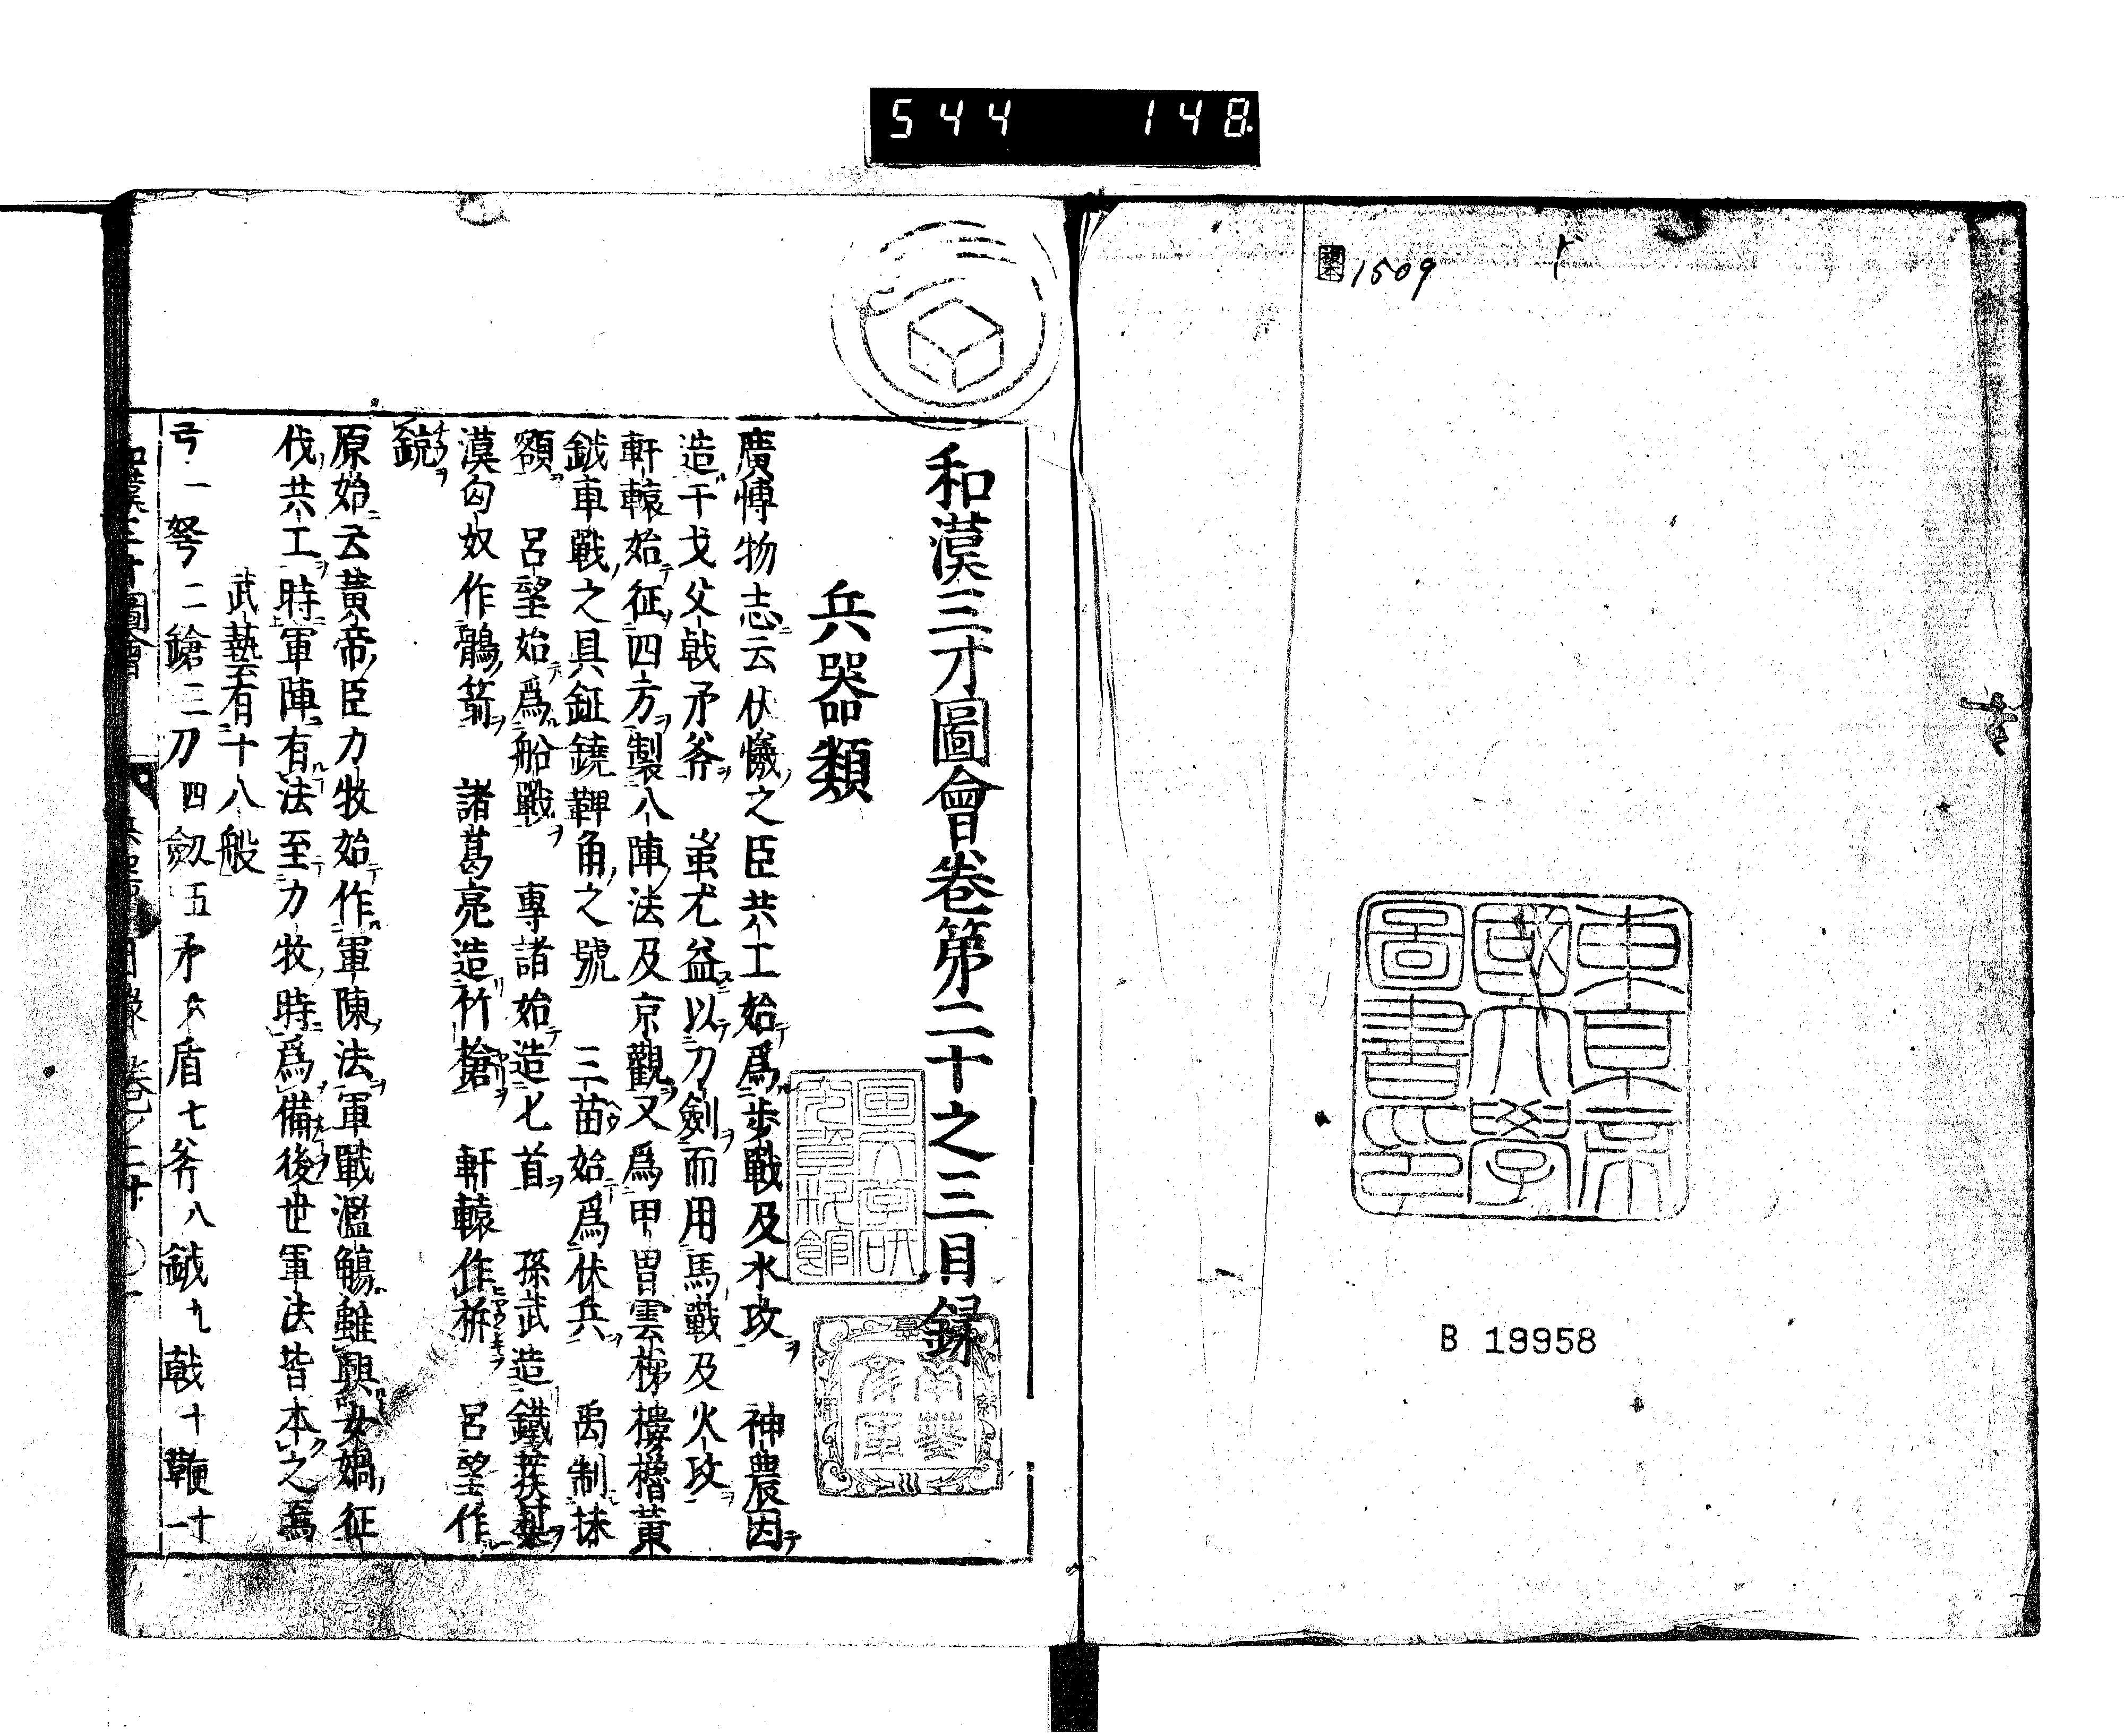 544 148.
1509
東京帝
國大學
圖書印
B 19958
和漢三才圖會卷第二十之三目録
兵器類
廣博物志云伏犧之臣共工始爲歩戰及水攻 神農因
造干戈殳戟矛斧 蚩尤益以刀劍而用馬戰及火攻
軒轅始征四方製八陣法及京觀又爲甲冑雲梯樓櫓黄
鉞車戰之具鉦鐃鞞角之號 三苗始爲伏兵 禹制抹
額 呂望始爲船戰 專諸始造匕首 孫武造鐵蒺藜
漢匈奴作鶻箭 諸葛亮造竹槍 軒轅作㭓 呂望作
銃
原始云黄帝臣力牧始作軍陳法軍戰濫觴雖興女媧征
伐共工時軍陣有法至力牧時爲備後世軍法皆本之焉
武藝有十八般
弓一弩二鎗三刀四劔五矛六盾七斧八鉞九戟十鞭十一